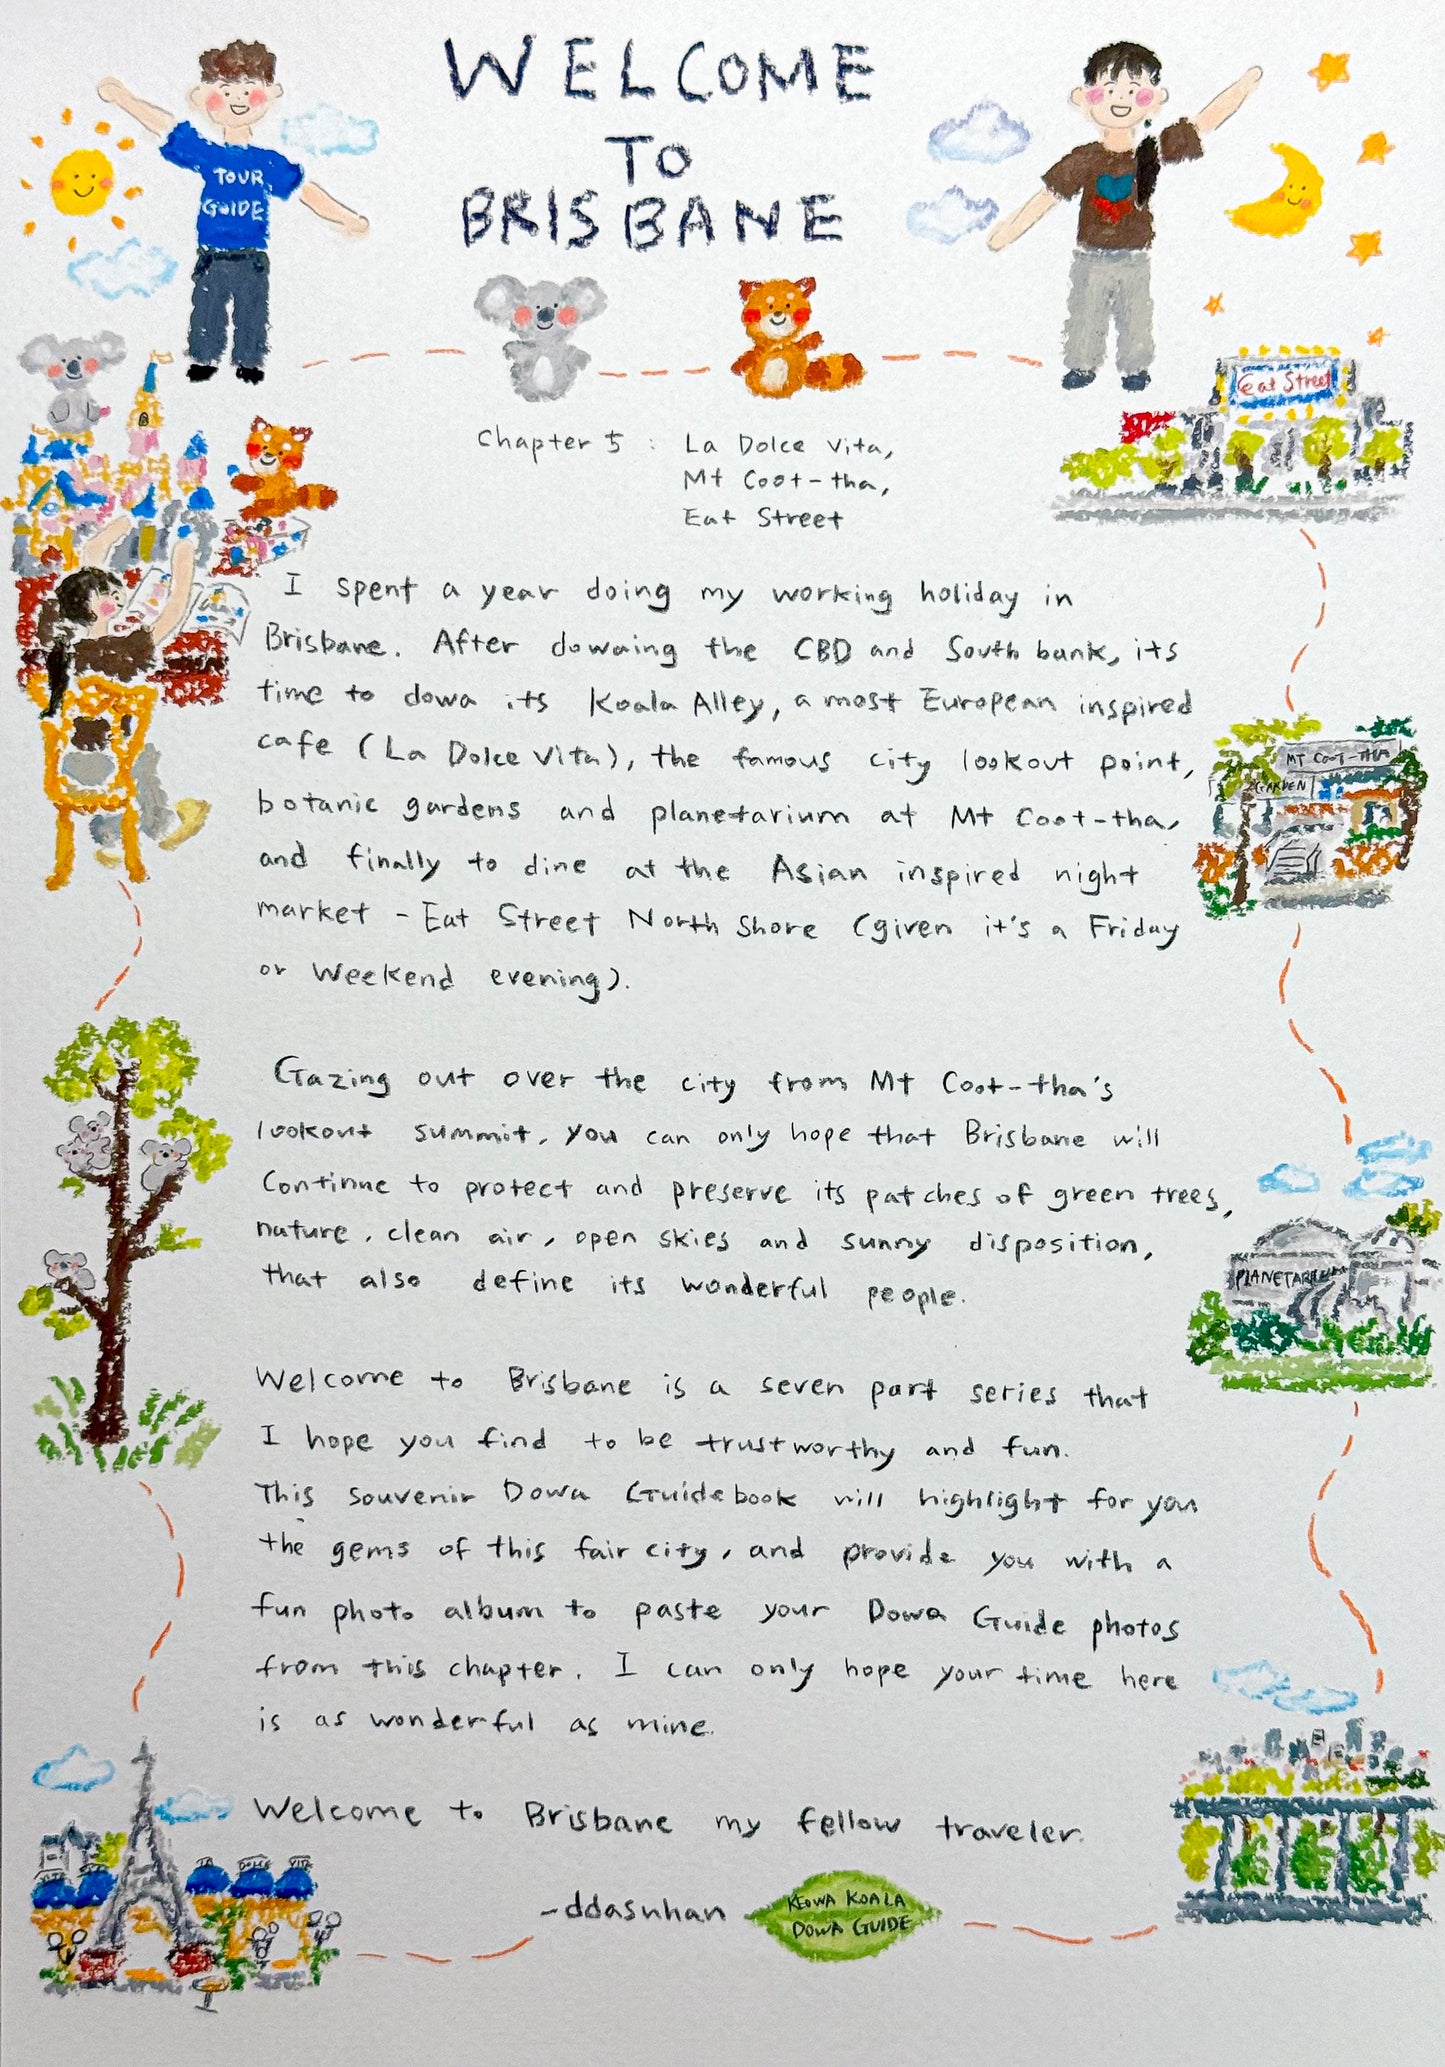 WELCOME
TO
BRISBANE
TOUR
GUIDE
Eat Street
Chapter 5 : La Dolce Vita,
Mt Coot-tha,
Eat Street
I spent a year doing my working holiday in
Brisbane. After dowaing the CBD and South bank, its
time to dowa its Koala Alley, a most European inspired
cafe (La Dolce Vita), the famous city lookout point,
botanic gardens and planetarium at Mt Coot-tha,
and finally to dine at the Asian inspired night
market - Eat Street North Shore (given it's a Friday
or Weekend evening).
MT COOT-THA
GARDEN
Gazing out over the city from Mt Coot-tha's
lookout summit, you can only hope that Brisbane will
Continue to protect and preserve its patches of green trees,
nature, clean air, open skies and sunny disposition,
that also define its wonderful people.
PLANETARIUM
Welcome to Brisbane is a seven part series that
I hope you find to be trustworthy and fun.
This souvenir Dowa Guidebook will highlight for you
the gems of this fair city, and provide you with a
fun photo album to paste your Dowa Guide photos
from this chapter. I can only hope your time here
is as wonderful as mine.
Welcome to Brisbane my fellow traveler.
LA DOLCE VITA
-ddasuhan
KEOWA KOALA
DOWA GUIDE